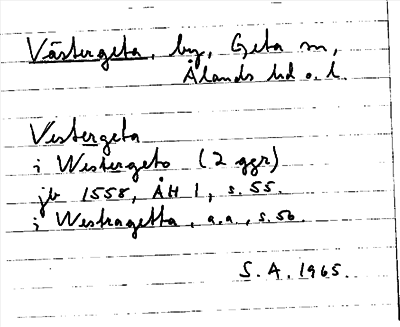 Västergeta, by, Geta sn,
Ålands hd o. l.
Vestergeta
i Westergeto (2 ggr)
jb 1558, ÅH 1, s. 55.
i Westragetta, a.a., s. 56.
S. A. 1965.